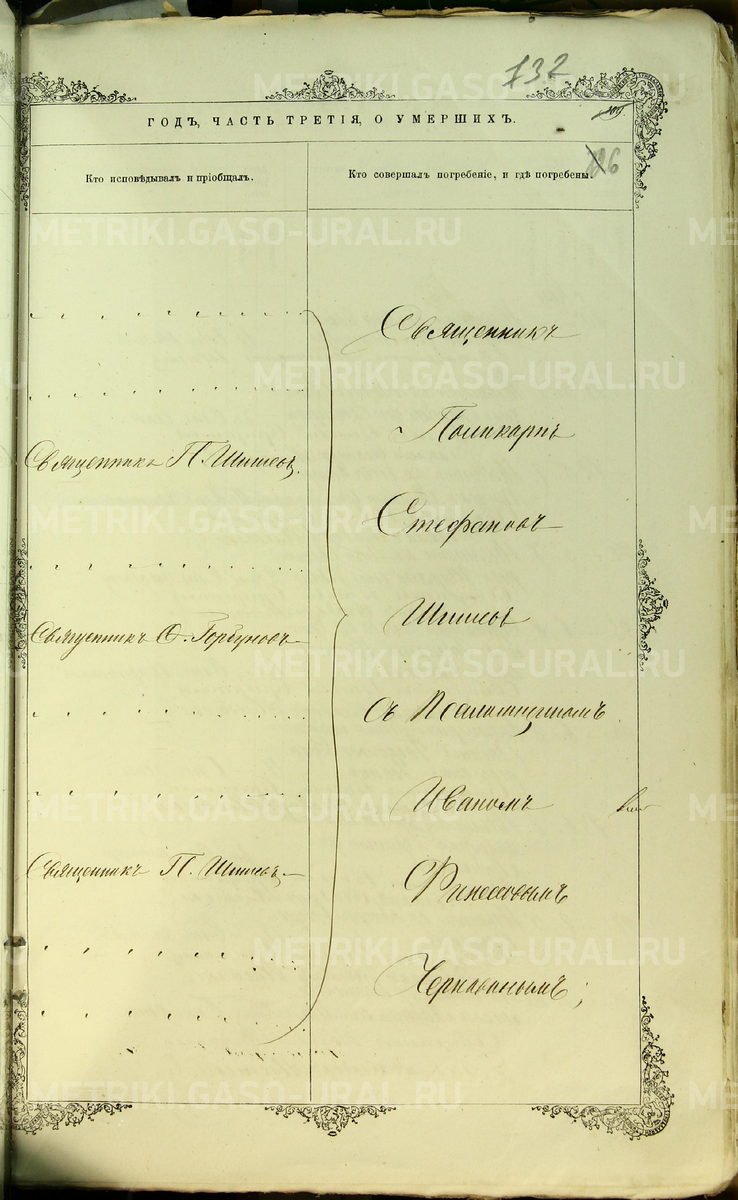 732
ГОДЪ, ЧАСТЬ ТРЕТІЯ, О УМЕРШИХЪ.
Кто исповѣдывалъ и пріобщалъ.
Кто совершалъ погребеніе, и гдѣ погребены.
Священникъ П. Шишевъ.
Священникъ Ѳ. Горбуновъ
Священникъ П. Шишевъ
Священникъ
Поликарпъ
Стефановъ
Шишевъ
съ Псаломщикомъ
Иваномъ
Финеесовымъ
Чернавинымъ;
METRIKI.GASO-URAL.RU